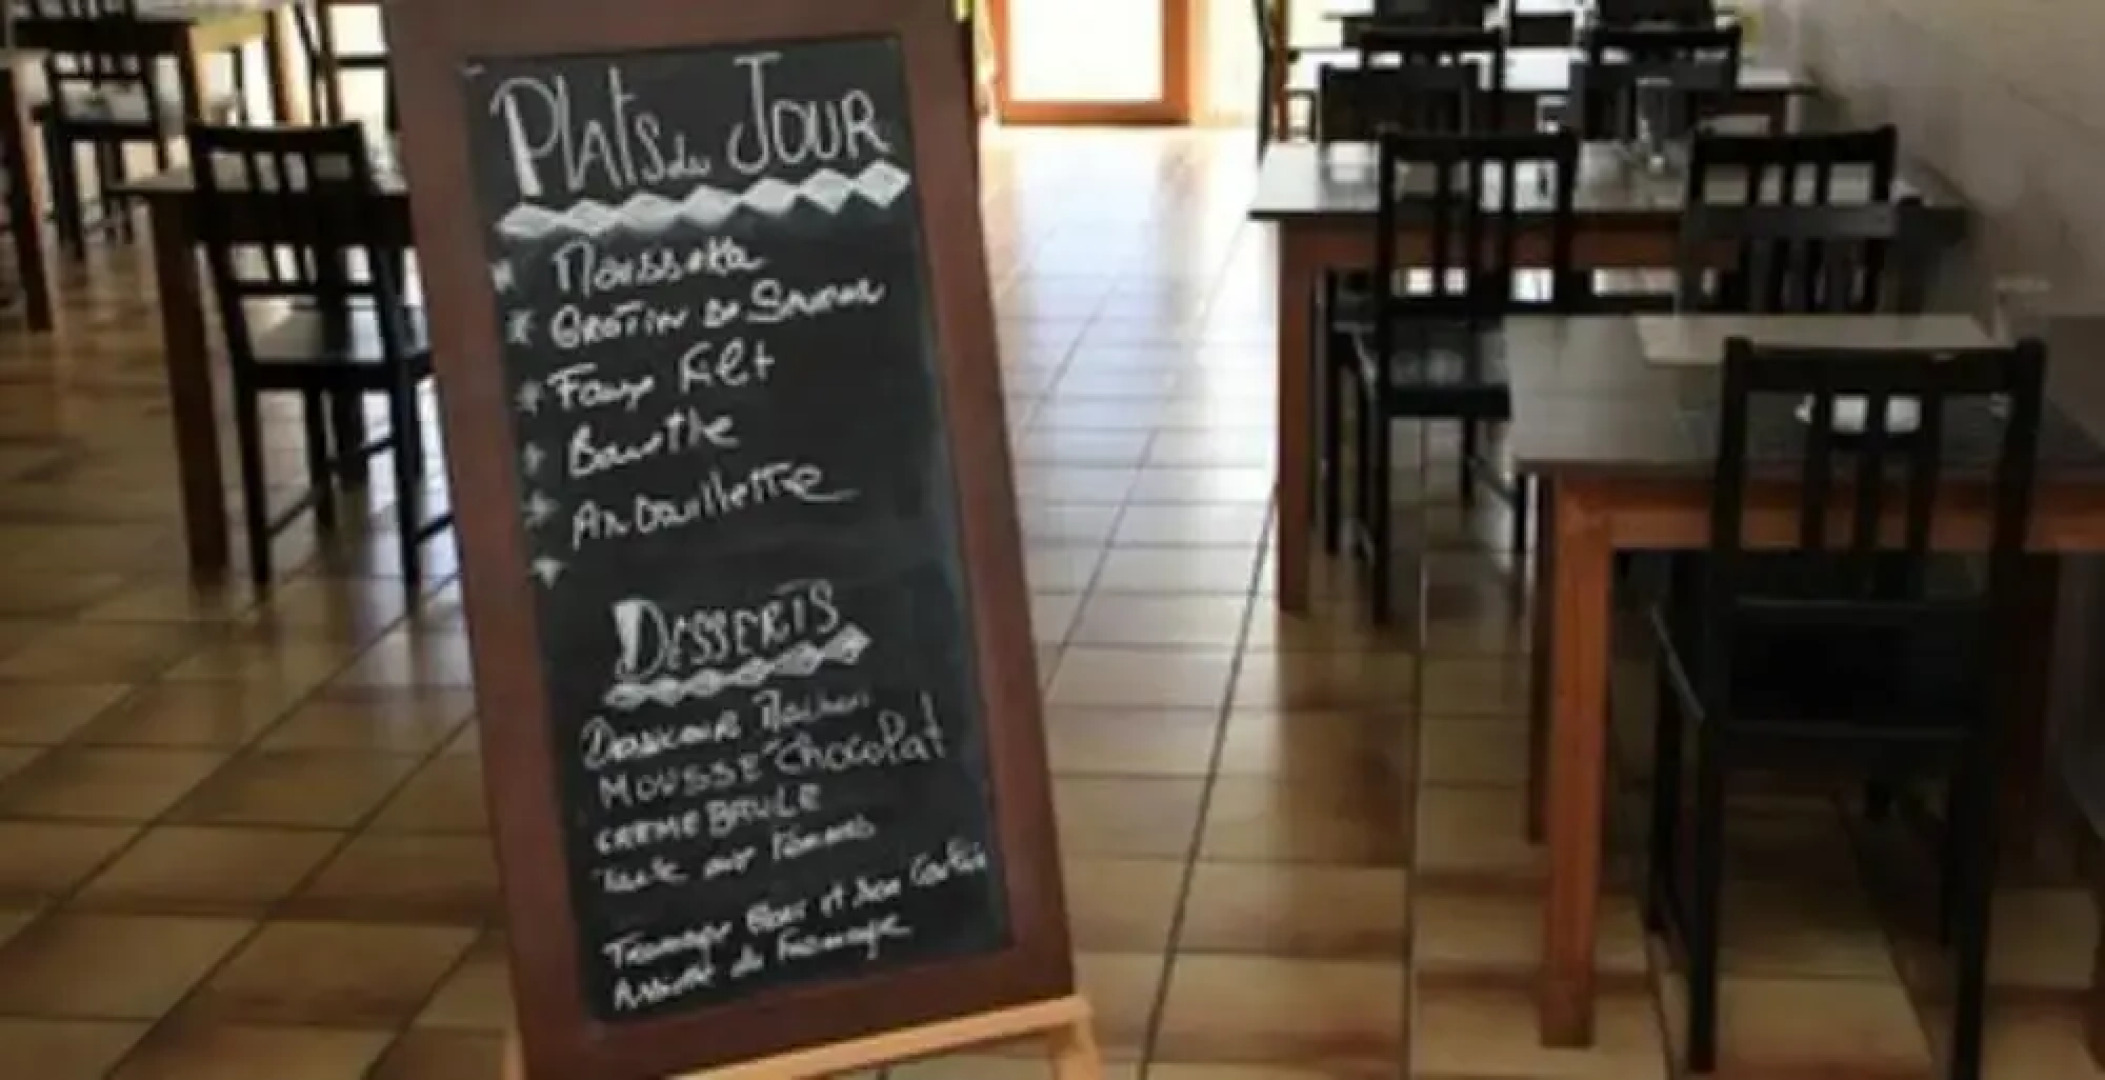 Plats du Jour
Moussaka
Gratin de
Faux Filet
Bavette
Andouillette
Desserts
Mousse Chocolat
Creme Brulé
Tarte aux Pommes
Fromage Blanc et son Coulis
Assiette de Fromage